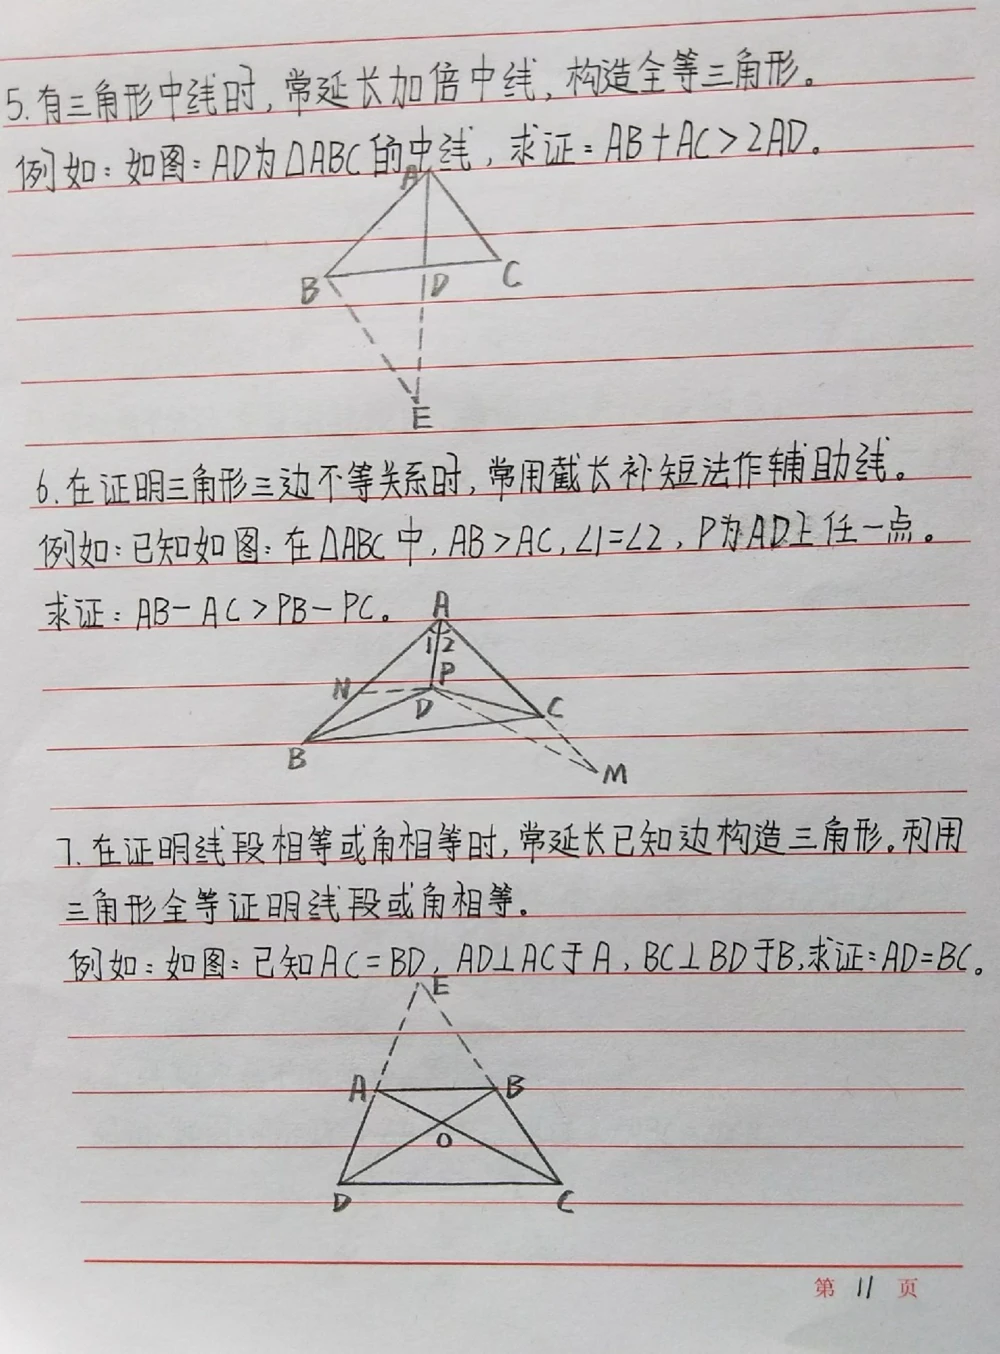 5.有三角形中线时,常延长加倍中线,构造全等三角形。
例如:如图:AD为△ABC的中线,求证:AB+AC>2AD。
A
B D C
E
6.在证明三角形三边不等关系时,常用截长补短法作辅助线。
例如:已知如图:在△ABC中,AB>AC,∠1=∠2,P为AD上任一点。
求证:AB-AC>PB-PC。
A
1 2
N P
D C
B M
7.在证明线段相等或角相等时,常延长已知边构造三角形。利用
三角形全等证明线段或角相等。
例如:如图:已知AC=BD,AD⊥AC于A,BC⊥BD于B,求证:AD=BC。
E
A B
O
D C
第 11 页